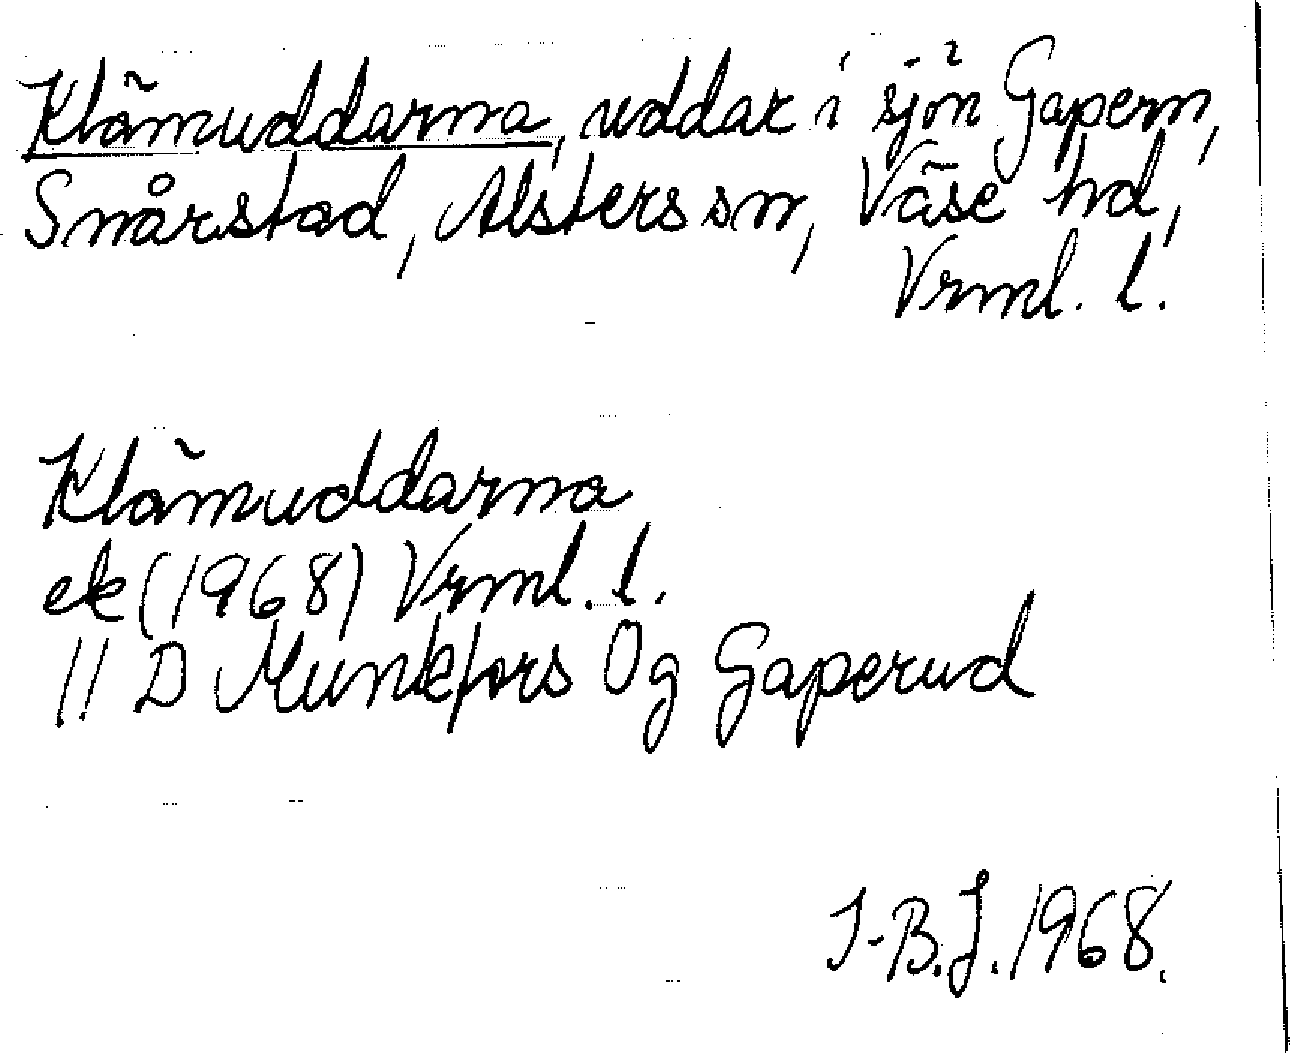 Klämuddarna, uddar i sjön Gapern,
Snårstad, Alsters sn, Väse hd,
Vrml. l.
Klämuddarna
ek (1968) Vrml. l.
11 D Munkfors 0g Gaperud
I-B.J. 1968.